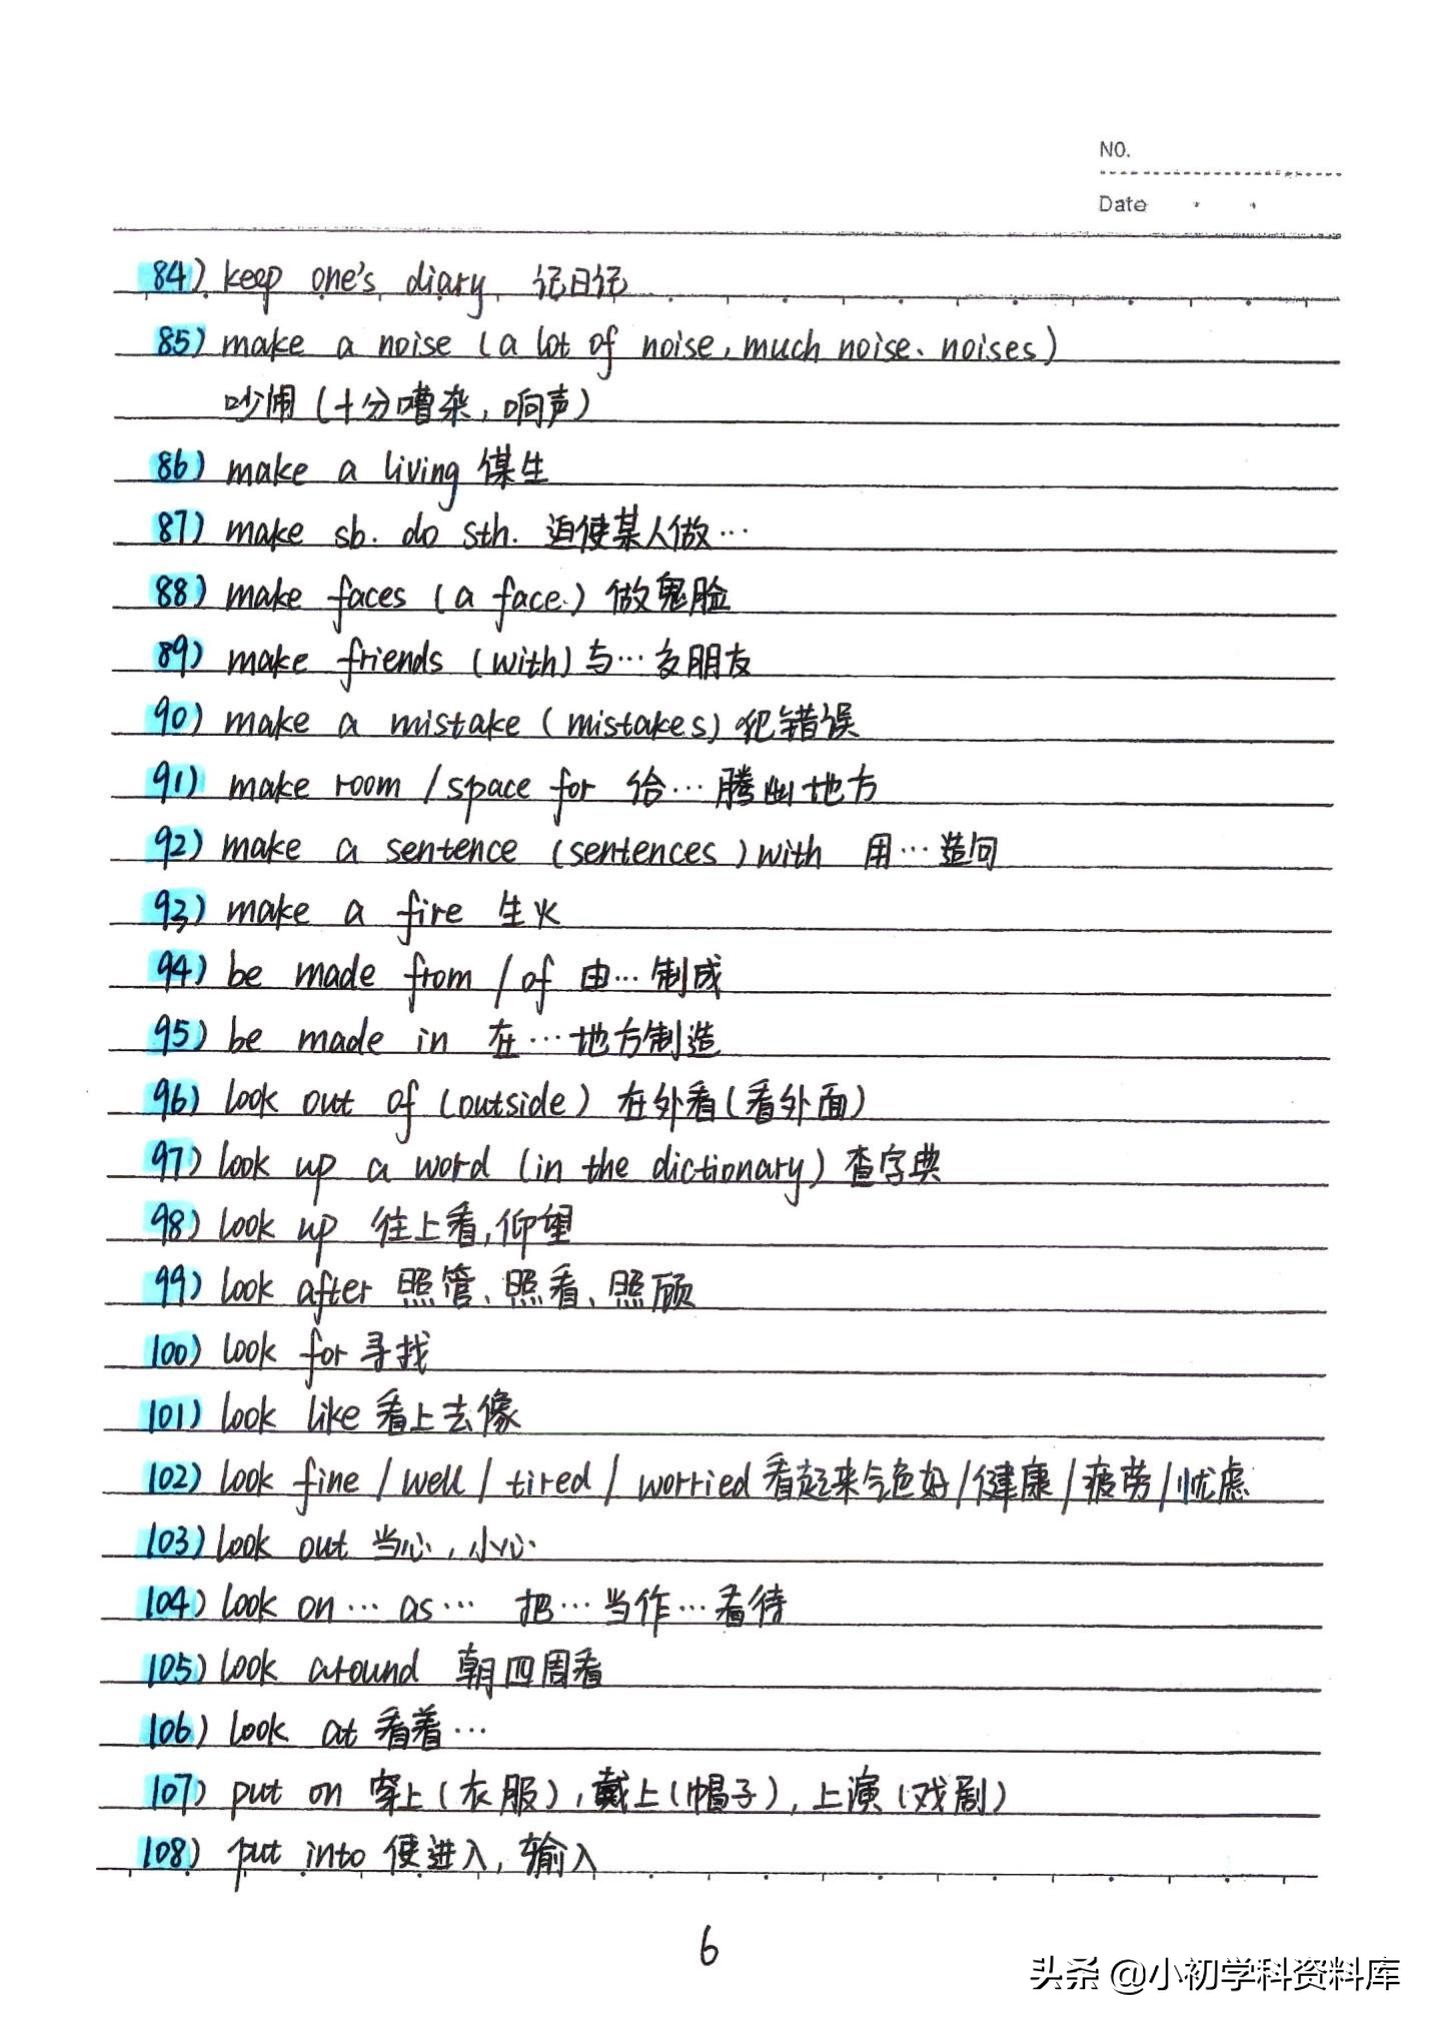 NO.
Date
84) keep one's diary 记日记
85) make a noise (a lot of noise, much noise、noises)
吵闹 (十分嘈杂, 响声)
86) make a living 谋生
87) make sb. do sth. 迫使某人做…
88) make faces (a face) 做鬼脸
89) make friends (with) 与…交朋友
90) make a mistake (mistakes) 犯错误
91) make room / space for 给…腾出地方
92) make a sentence (sentences) with 用…造句
93) make a fire 生火
94) be made from / of 由…制成
95) be made in 在…地方制造
96) look out of (outside) 在外看 (看外面)
97) look up a word (in the dictionary) 查字典
98) look up 往上看, 仰望
99) look after 照管、照看、照顾
100) look for 寻找
101) look like 看上去像
102) look fine / well / tired / worried 看起来气色好/健康/疲劳/忧虑
103) look out 当心, 小心
104) look on … as … 把…当作…看待
105) look around 朝四周看
106) look at 看着…
107) put on 穿上 (衣服), 戴上 (帽子), 上演 (戏剧)
108) put into 使进入, 输入
6
头条 @小初学科资料库